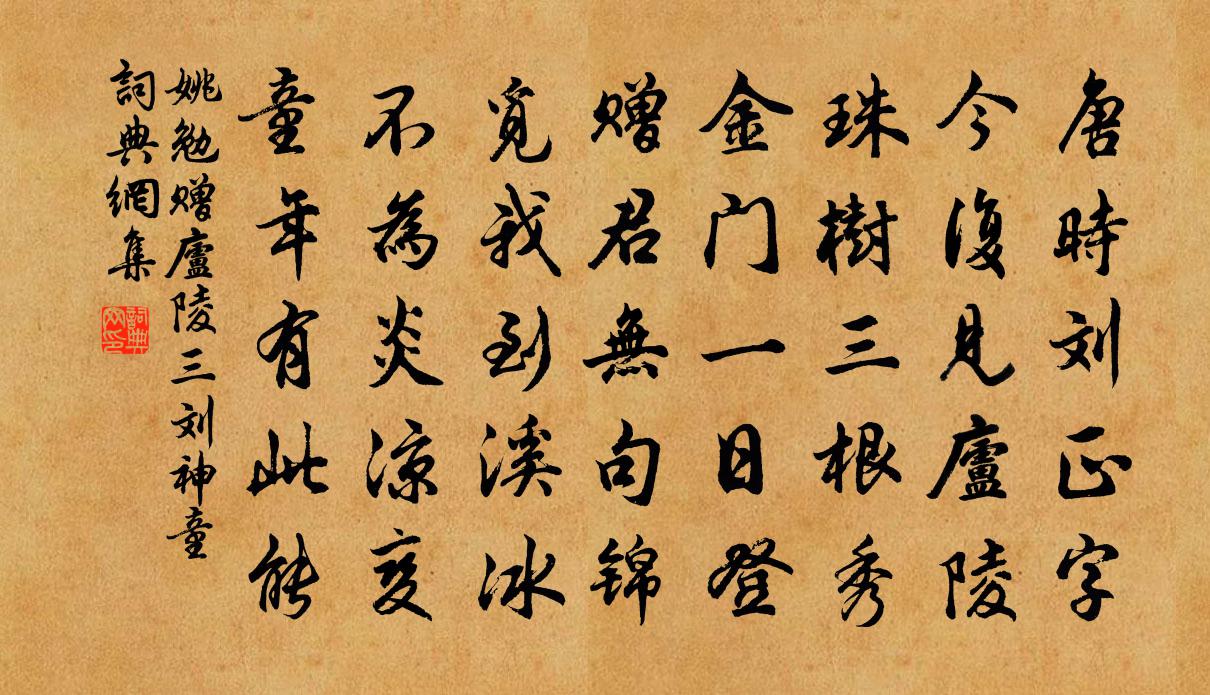 唐時刘正字
今復見廬陵
珠樹三根秀
金门一日登
赠君無句锦
覓我到溪冰
不為炎凉变
童年有此能
姚勉赠廬陵三刘神童
詞典網集
詞典
网印